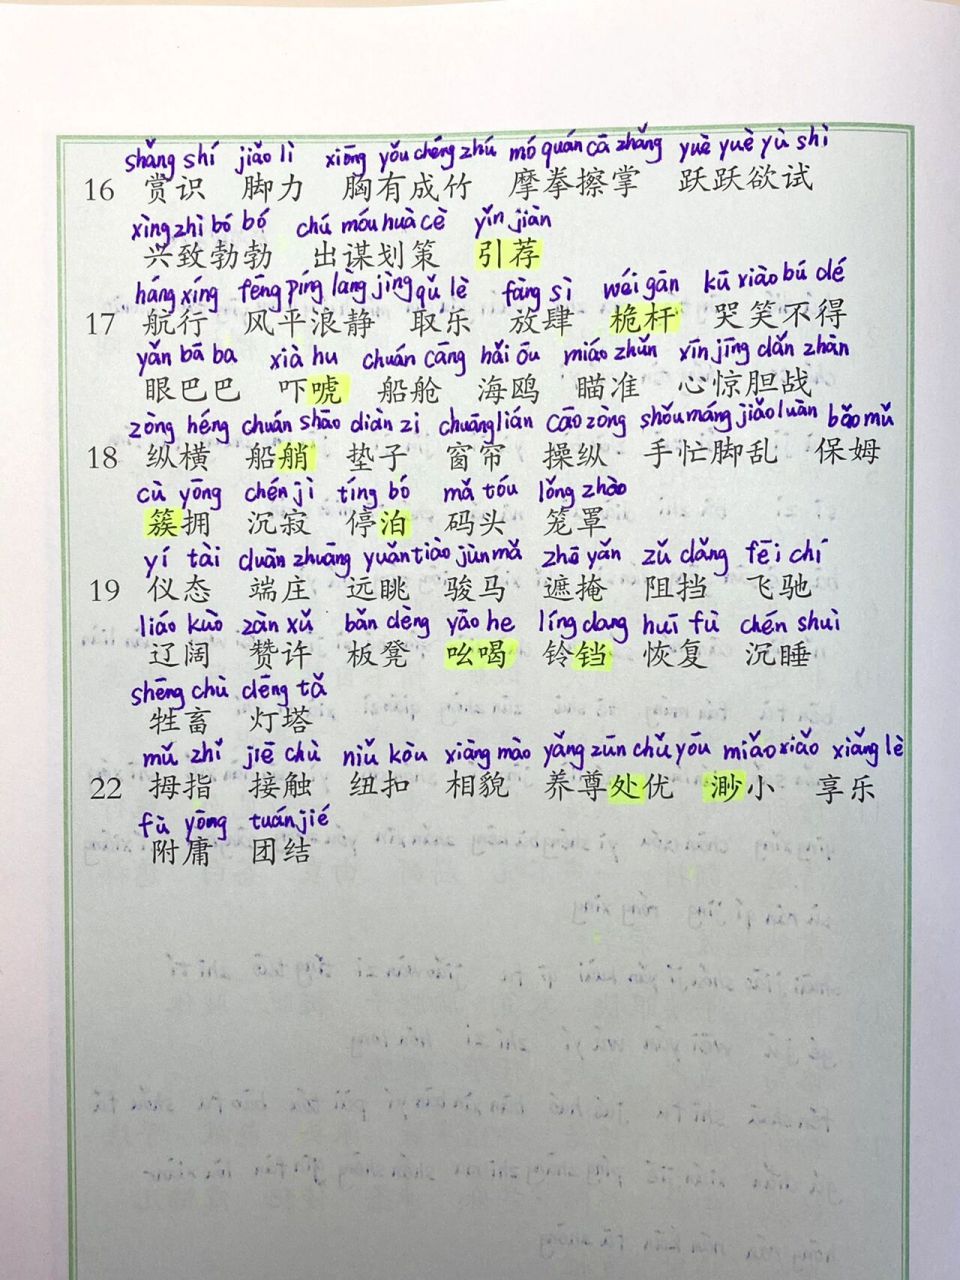 shǎng shí jiǎo lì xiōng yǒu chéng zhú mó quán cā zhǎng yuè yuè yù shì
16 赏识 脚力 胸有成竹 摩拳擦掌 跃跃欲试
xìng zhì bó bó chū móu huà cè yǐn jiàn
兴致勃勃 出谋划策 引荐
háng xíng fēng píng làng jìng qǔ lè fàng sì wéi gān kū xiào bù dé
17 航行 风平浪静 取乐 放肆 桅杆 哭笑不得
yǎn bā ba xià hu chuán cāng hǎi ōu miáo zhǔn xīn jīng dǎn zhàn
眼巴巴 吓唬 船舱 海鸥 瞄准 心惊胆战
zòng héng chuán shāo diàn zi chuāng lián cāo zòng shǒu máng jiǎo luàn bǎo mǔ
18 纵横 船艄 垫子 窗帘 操纵 手忙脚乱 保姆
cù yōng chén jì tíng bó mǎ tóu lǒng zhào
簇拥 沉寂 停泊 码头 笼罩
yí tài duān zhuāng yuǎn tiào jùn mǎ zhē yǎn zǔ dǎng fēi chí
19 仪态 端庄 远眺 骏马 遮掩 阻挡 飞驰
liáo kuò zàn xǔ bǎn dèng yāo he líng dang huī fù chén shuì
辽阔 赞许 板凳 吆喝 铃铛 恢复 沉睡
shēng chù dēng tǎ
牲畜 灯塔
mǔ zhǐ jiē chù niǔ kòu xiàng mào yǎng zūn chǔ yōu miǎo xiǎo xiǎng lè
22 拇指 接触 纽扣 相貌 养尊处优 渺小 享乐
fù yōng tuán jié
附庸 团结